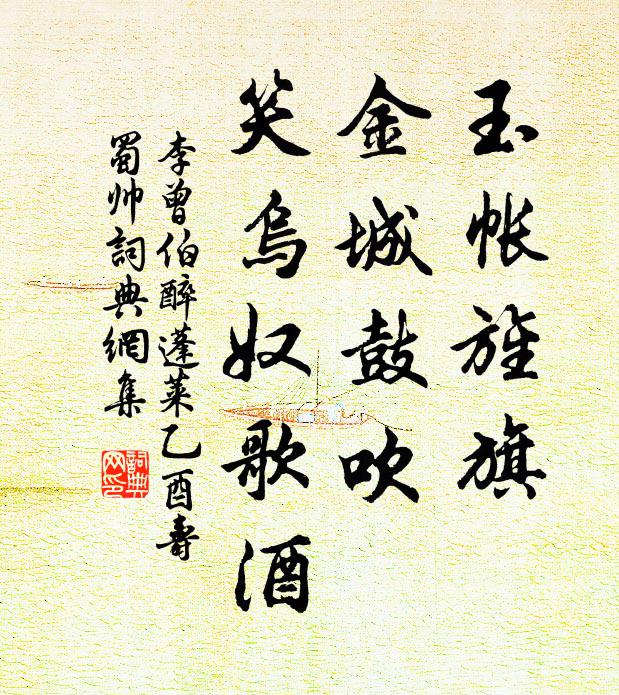 玉帐旌旗
金城鼓吹
笑乌奴歌酒
李曾伯醉蓬莱乙酉寿
蜀帅词典網集
詞典
网印